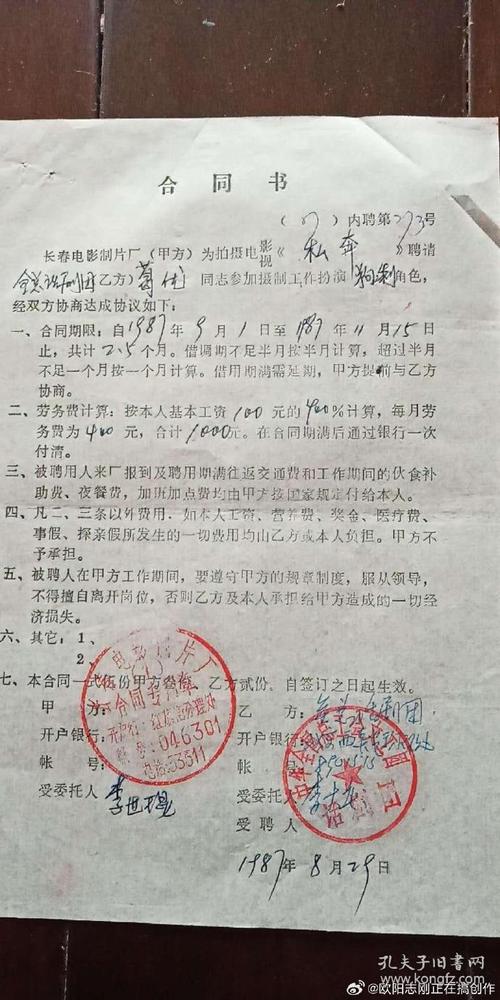 合同书
(87)内聘第273号
长春电影制片厂(甲方)为拍摄电影视《私奔》聘请
全总话剧团(乙方)葛优同志参加摄制工作扮演角色,
经双方协商达成协议如下:
一、合同期限:自1987年9月1日至1987年11月15日
止,共计2.5个月。借调期不足半月按半月计算,超过半月
不足一个月按一个月计算。借用期满需延期,甲方提前与乙方
协商。
二、劳务费计算:按本人基本工资100元的400%计算,每月劳
务费为400元,合计1000元。在合同期满后通过银行一次
付清。
三、被聘用人来厂报到及聘用期满往返交通费和工作期间的伙食补
助费、夜餐费,加班加点费均由甲方按国家规定付给本人。
四、凡二、三条以外费用,如本人工资、营养费、奖金、医疗费、
事假、探亲假所发生的一切费用均由乙方或本人负担。甲方不
予承担。
五、被聘人在甲方工作期间,要遵守甲方的规章制度,服从领导,
不得擅自离开岗位,否则乙方及本人承担给甲方造成的一切经
济损失。
六、其它:1、
2、
七、本合同一式伍份甲方叁份,乙方贰份,自签订之日起生效。
甲方:
乙方:全总话剧团
开户银行:
开户银行:
帐号:
帐号:
受委托人
受委托人
受聘人
电影制片厂
合同专用章
046301
电话:53311
话剧团
1987年8月29日
孔夫子旧书网
@欧阳志刚正在搞创作